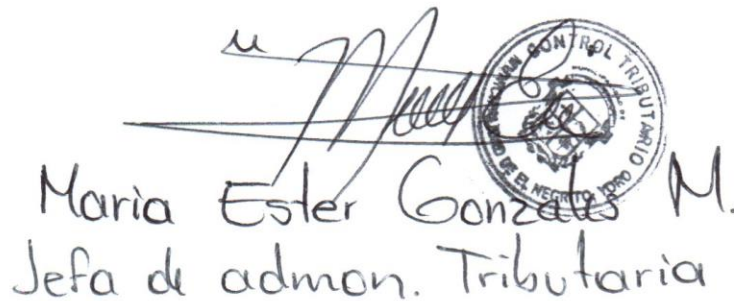 CONTROL TRIBUTARIO
DE EL NEGRITO YORO
Maria Ester Gonzales M.
Jefa de admon. Tributaria